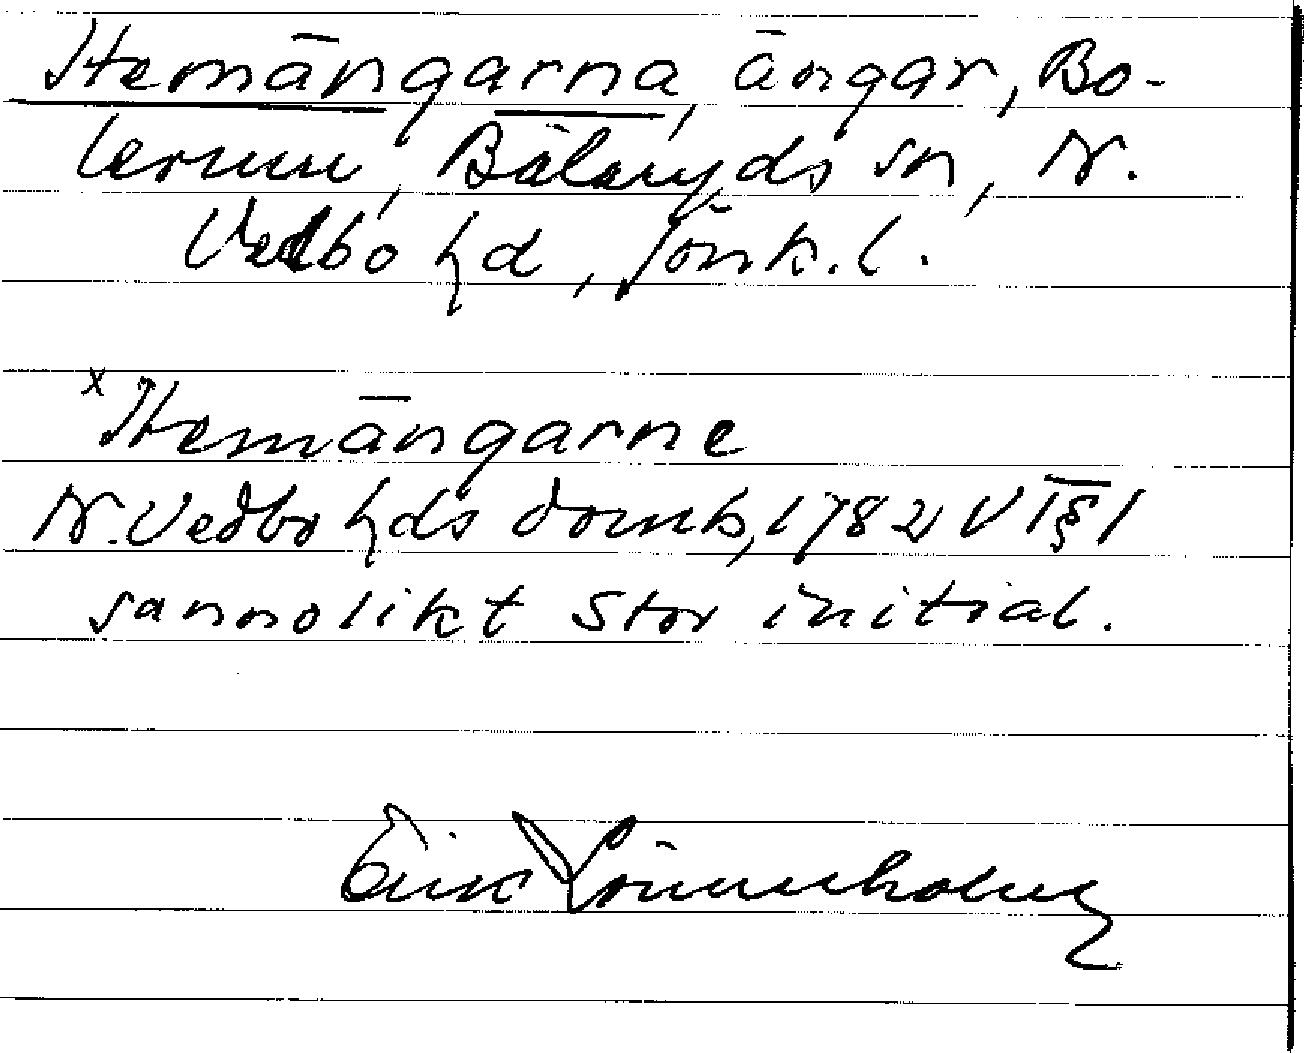 Hemängarna, ängar, Bo-
lerum, Bälaryds sn, N.
Vedbo hd, Jönk. l.
x Hemängarne
N. Vedbo hds domb, 1782 VT § 1
sannolikt stor initial.
Erik Lönnerholm